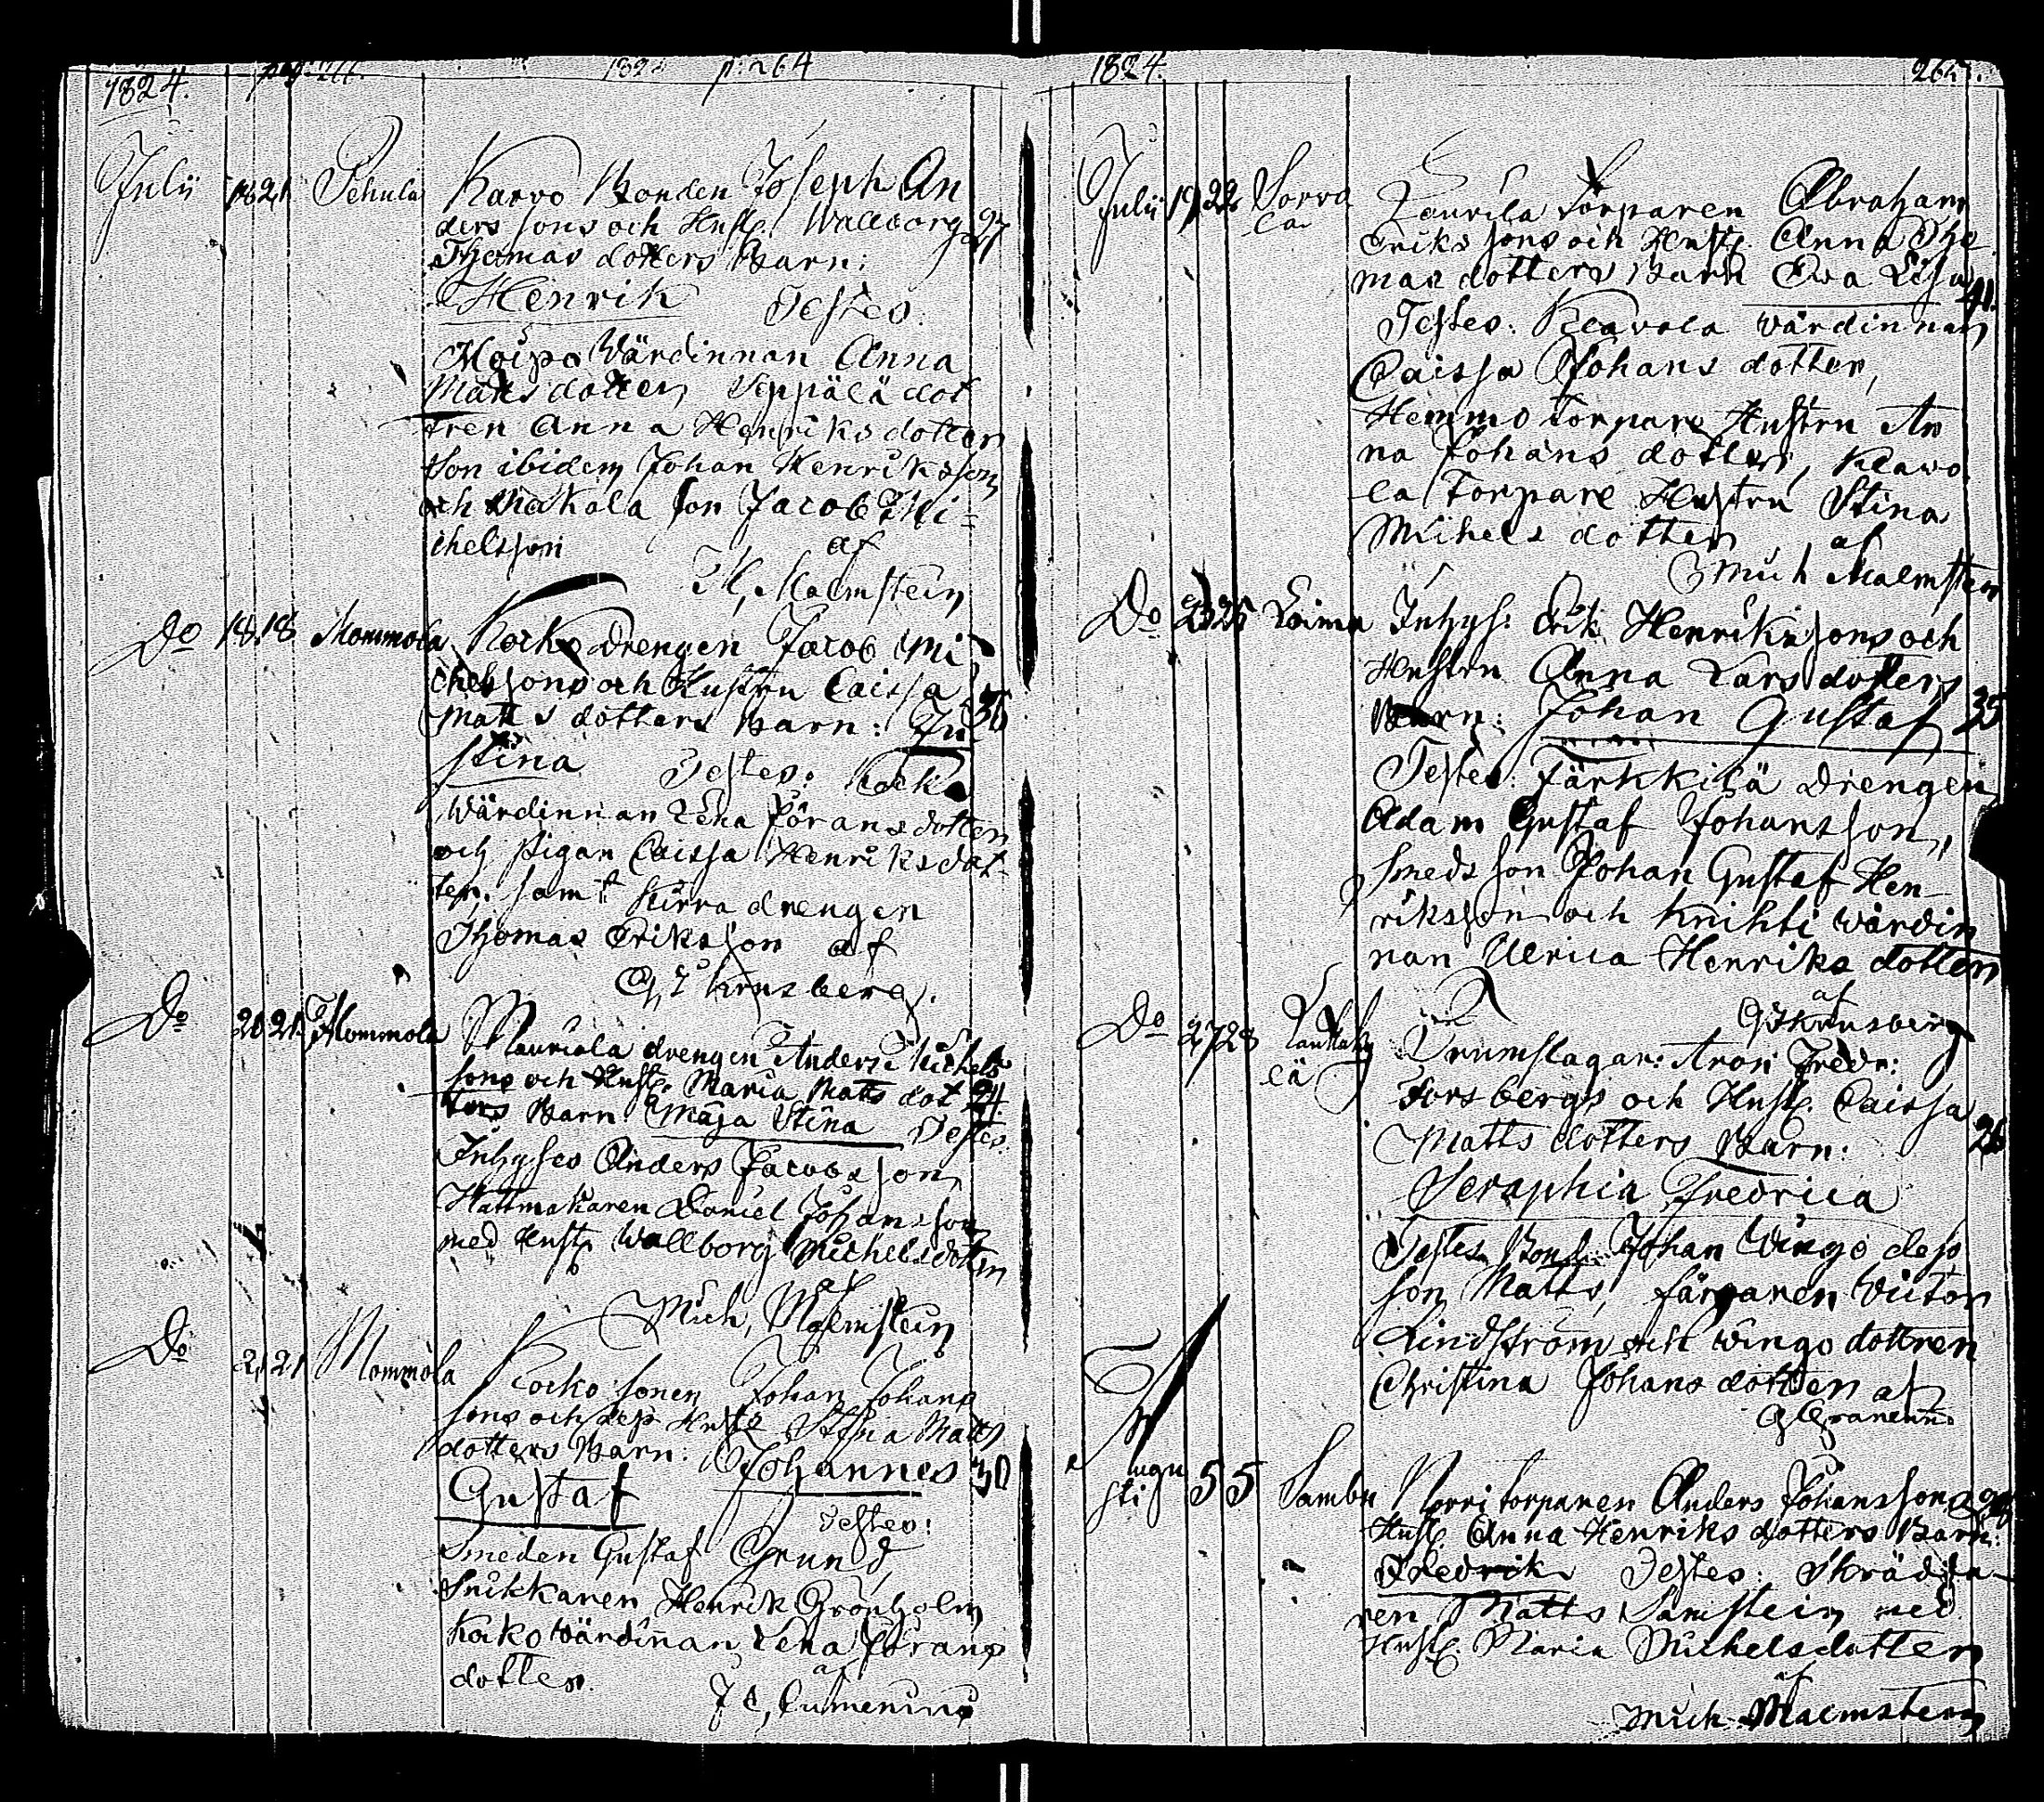 1824. p: 264
Julii 18 21 Pehula Karvo Bonden Joseph An
ders sons och Hust. Wallborg 27
Thomas dotters Barn:
Henrik Testes:
Moipo Wärdinnan Anna
Matts dotter, Seppälä dot
tren Anna Henriks dotter
Son ibidem Johan Henriksson
och Mackola Son Jacob Mi-
chelsson af
M, Malmstein
Do 18 18 Mommola Kocko Drengen Jacob Mi
chelssons och Hustru Caissa
Matts dotters Barn: Ju 36
stina Testes: Kocko
Wärdinnan Lena Jörans dotter
och Pigan Caissa Henriks dot
ter. samt Kurra drengen
Thomas Eriksson af
G, Z Krusberg.
Do 20 21. Mommola Mauriala drengen Anders Michels
sons och Hust. Maria Matts dot 24
ters Barn Maja Stina Testes:
Inhyses Anders Jacobsson,
Hattmakaren Daniel Johansson
med Hust. Wallborg Michelsdotter
af
Mich, Malmstein
Do 21 21 Mommola Kocko Sonen Johan Johans
sons och dess Hust. Stina Matts
dotters Barn: Johannes 30
Gustaf
Testes:
Smeden Gustaf Grund,
Snikkaren Henrik Grönholm
Kocko Wärdinnan Lena Jörans
dotter. af
J C, Cumenius
1824. 265.
Julii 19 22 Sorva
la Laurila Torparen Abraham
Eriks sons och Hust. Anna Tho
mas dotters Barn Ewa Lisa 41.
Testes: Klavola Wärdinnan
Caissa Johans dotter,
Hemmo Torpare Hustru An
na Johans dotter, Klavo
la Torpare Hustru Stina
Michels dotter af
Mich Malmsten
Do 23 25 Loima Inhys: Erik Henrikssons och
Hustru Anna Lars dotters
Barn: Johan Gustaf 35
Testes: Färkkilä Drengen
Adam Gustaf Johansson,
Smeds son Johan Gustaf Hen-
riksson och Knihti Wärdin
nan Ulrica Henriks dotter
af
G Z Krusberg
Do 27 28 Lauttaky
lä Trumslagar: Aron Fredr:
Forsbergs och Hust. Caissa
Matts dotters Barn: 26
Seraphia Fredrica
Testes Bond. Johan Wingo dess
son Matts, färgaren Victor
Lindström och Wingo dottren
Christina Johans dotter af
G Granenn.
Augu
sti 5 5 Sambu Norri torparen Anders Johanssons
Hust. Anna Henriks dotters Barn:
Fredrik Testes: Skrädda-
ren Matts Samstein med
Hust. Maria Michelsdotter
af
Mich Malmstein